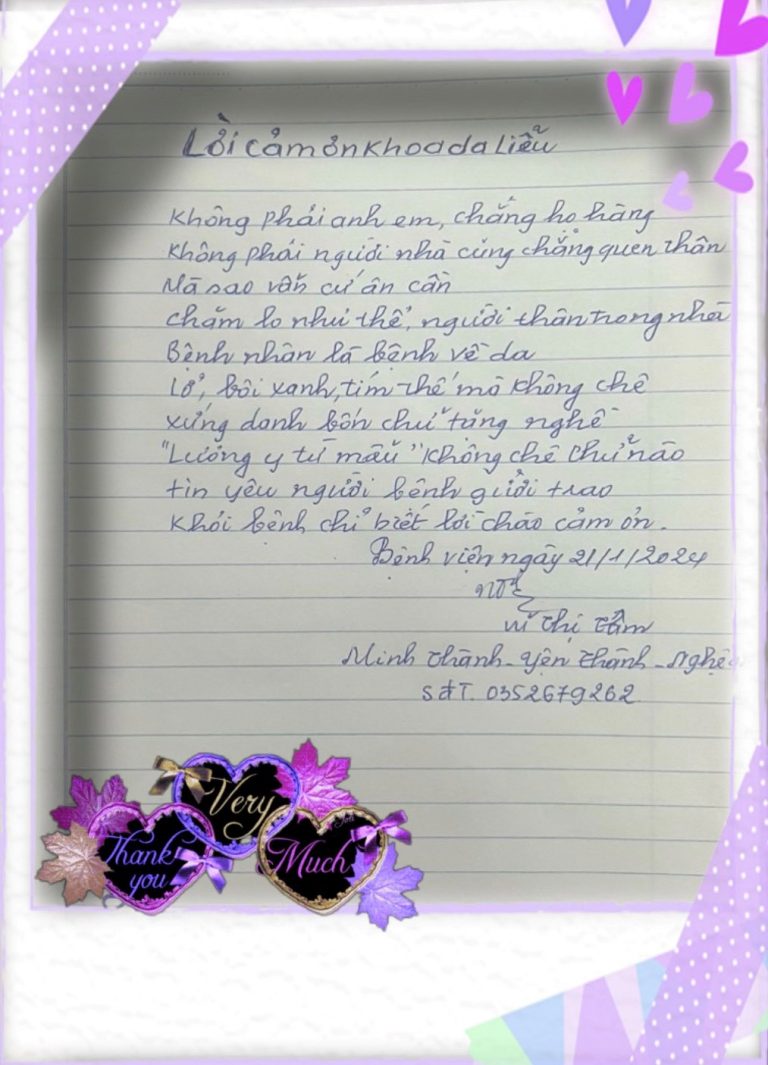 Lời cảm ơn khoa da liễu
Không phải anh em, chẳng họ hàng
Không phải người nhà cũng chẳng quen thân
Mà sao vẫn cứ ân cần
chăm lo như thể, người thân trong nhà
Bệnh nhân là bệnh về da
Lở, bôi xanh, tím thế mà không chê
xứng danh bốn chữ tặng nghề
"Lương y từ mẫu" không chê chữ nào
tin yêu người bệnh gửi trao
Khỏi bệnh chỉ biết lời chào cảm ơn.
Bệnh viện ngày 21/1/2024
Vi Thị Tâm
Minh Thành - Yên Thành - Nghệ
SđT. 0352679262
Very
Thank you
Much